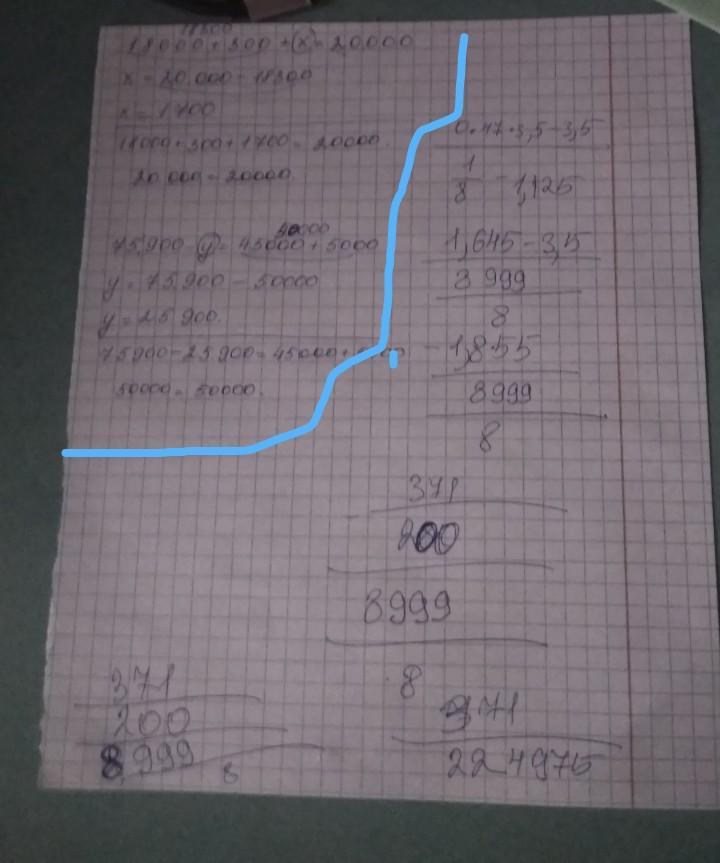 18300
18000 + 300 + (x) = 20.000
x = 20.000 - 18300
x = 1700
18000 + 300 + 1700 = 20000.
20.000 = 20000.
50000
75.900 - y = 45000 + 5000
y = 75.900 - 50000
y = 25.900.
75900 - 25900 = 45000 +
50000 = 50000.
0.47 · 3,5 - 3,5
1
8
- 1,125
1,645 - 3,5
8 999
8
- 1,855
8999
8
371
200
8999
8
371
200
8.999
8
371
224975